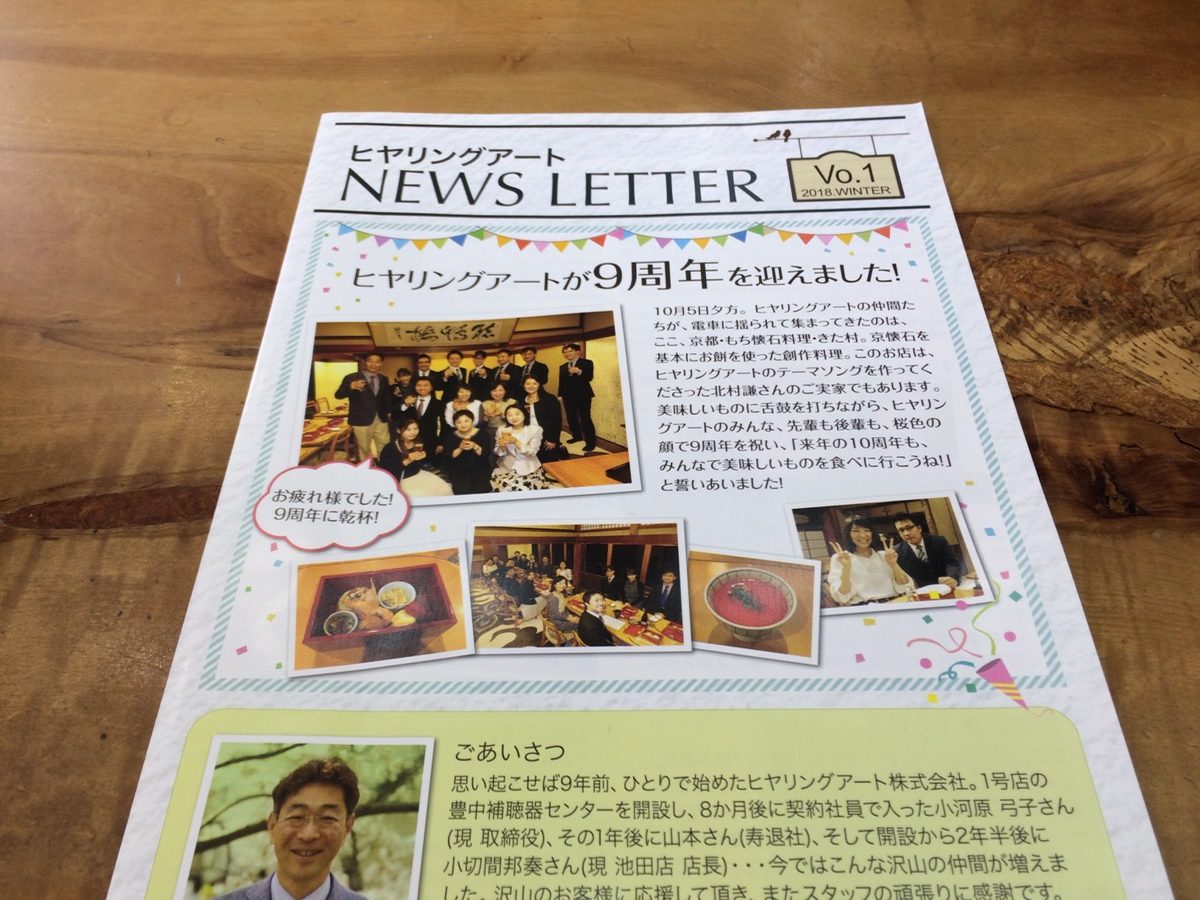 ヒヤリングアート
NEWS LETTER
Vo.1
2018.WINTER
ヒヤリングアートが9周年を迎えました!
10月5日夕方。ヒヤリングアートの仲間た
ちが、電車に揺られて集まってきたのは、
ここ、京都・もち懐石料理・きた村。京懐石を
基本にお餅を使った創作料理。このお店は、
ヒヤリングアートのテーマソングを作ってく
ださった北村謙さんのご実家でもあります。
美味しいものに舌鼓を打ちながら、ヒヤリン
グアートのみんな、先輩も後輩も、桜色の
顔で9周年を祝い、「来年の10周年も、
みんなで美味しいものを食べに行こうね!」
と誓いあいました!
お疲れ様でした!
9周年に乾杯!
ごあいさつ
思い起こせば9年前、ひとりで始めたヒヤリングアート株式会社。1号店の
豊中補聴器センターを開設し、8か月後に契約社員で入った小河原 弓子さん
(現 取締役)、その1年後に山本さん(寿退社)、そして開設から2年半後に
小切間邦奏さん(現 池田店 店長)・・・今ではこんな沢山の仲間が増えま
した。沢山のお客様に応援して頂き、またスタッフの頑張りに感謝です。